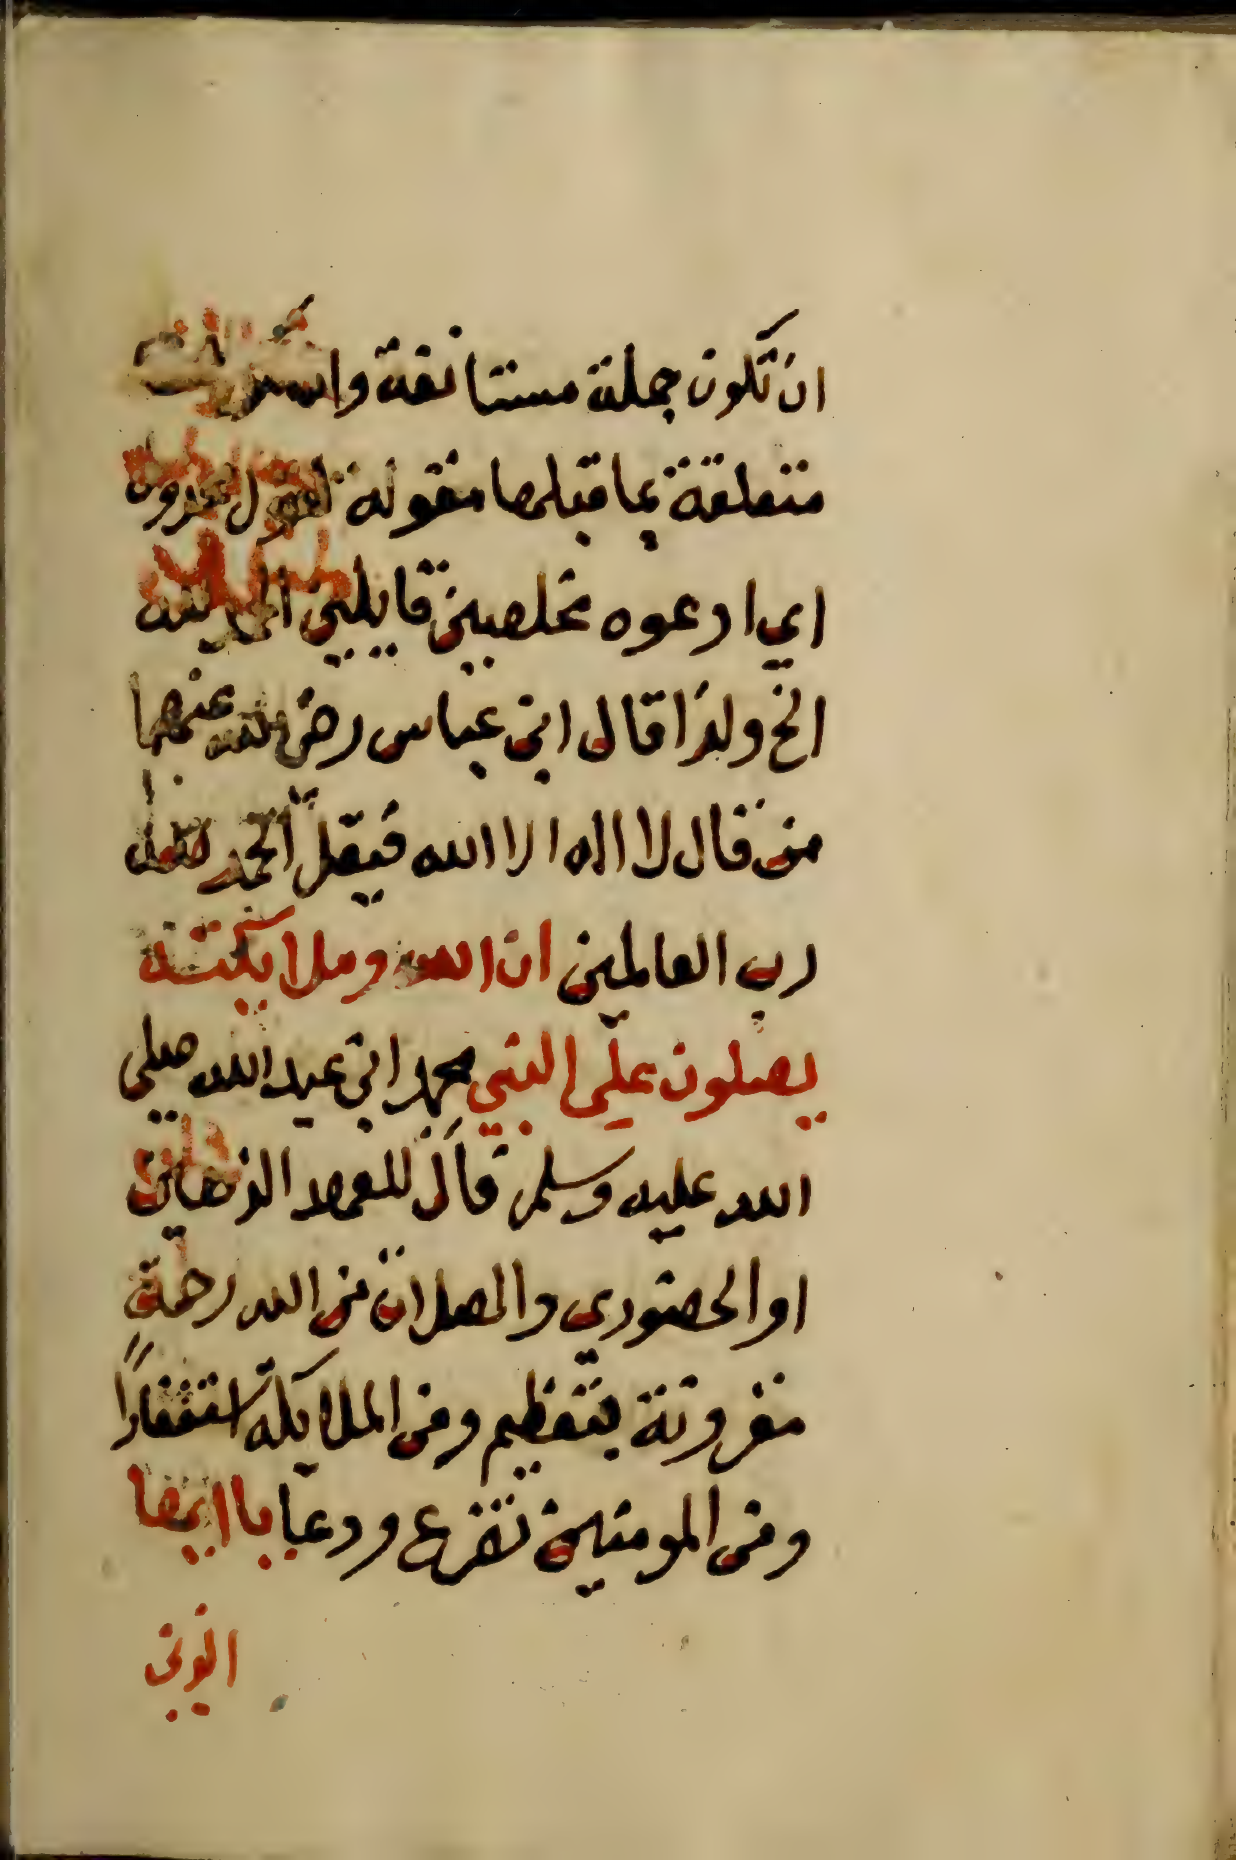 ان تكون جملة مستانفة وان
متعلقة بما قبلها مقولة لقول محذوف
اي ادعوه مخلصين قايلين الحمد لله
الخ ولذا قال ابن عباس رضي الله عنهما
من قال لا اله الا الله فيقل الحمد لله
رب العالمين ان الله وملايكته
يصلون على النبي محمد ابن عبد الله صلى
الله عليه وسلم قال للعهد الذهني
او الحضوري والصلاة من الله رحمة
مقرونة بتعظيم ومن الملايكة استغفارا
ومن المومنين تضرع ودعا يا ايها
الذين